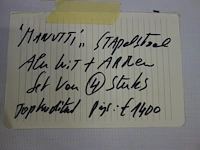 "MANUTTI" STAPELSTOEL
ALU WIT + ARMEN
Set van ④ stuks
TOPKWALITEIT Prijs: € 1400